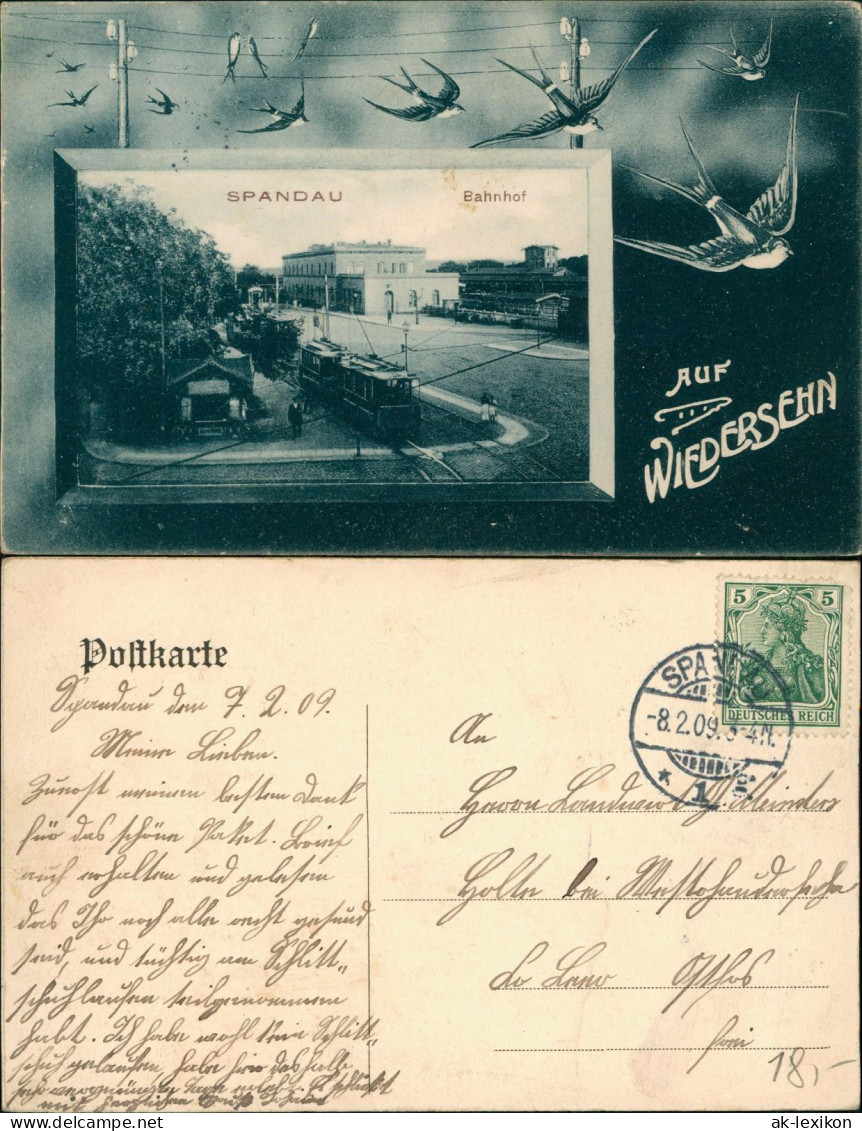 SPANDAU
Bahnhof
AUF
WIEDERSEHN
Postkarte
Spandau den 7.2.09.
Meine Lieben.
Zuerst meinen besten Dank
für das schöne Paket. Brief
auch erhalten und gelesen
das Ihr noch alle recht gesund
seid, und tüchtig am Schlitt„
schuhlaufen teilgenommen
habt. Ich habe wohl kein Schlitt„
schuh gelaufen, habe hier deshalb
mit herzlichen Gruß
DEUTSCHES REICH
5 5
SPANDAU
-8.2.09. 3-4N.
* 1
An
Herrn Landwirt J. Meinders
Holte bei
Ostfrs
frei
18,-
ak-lexikon